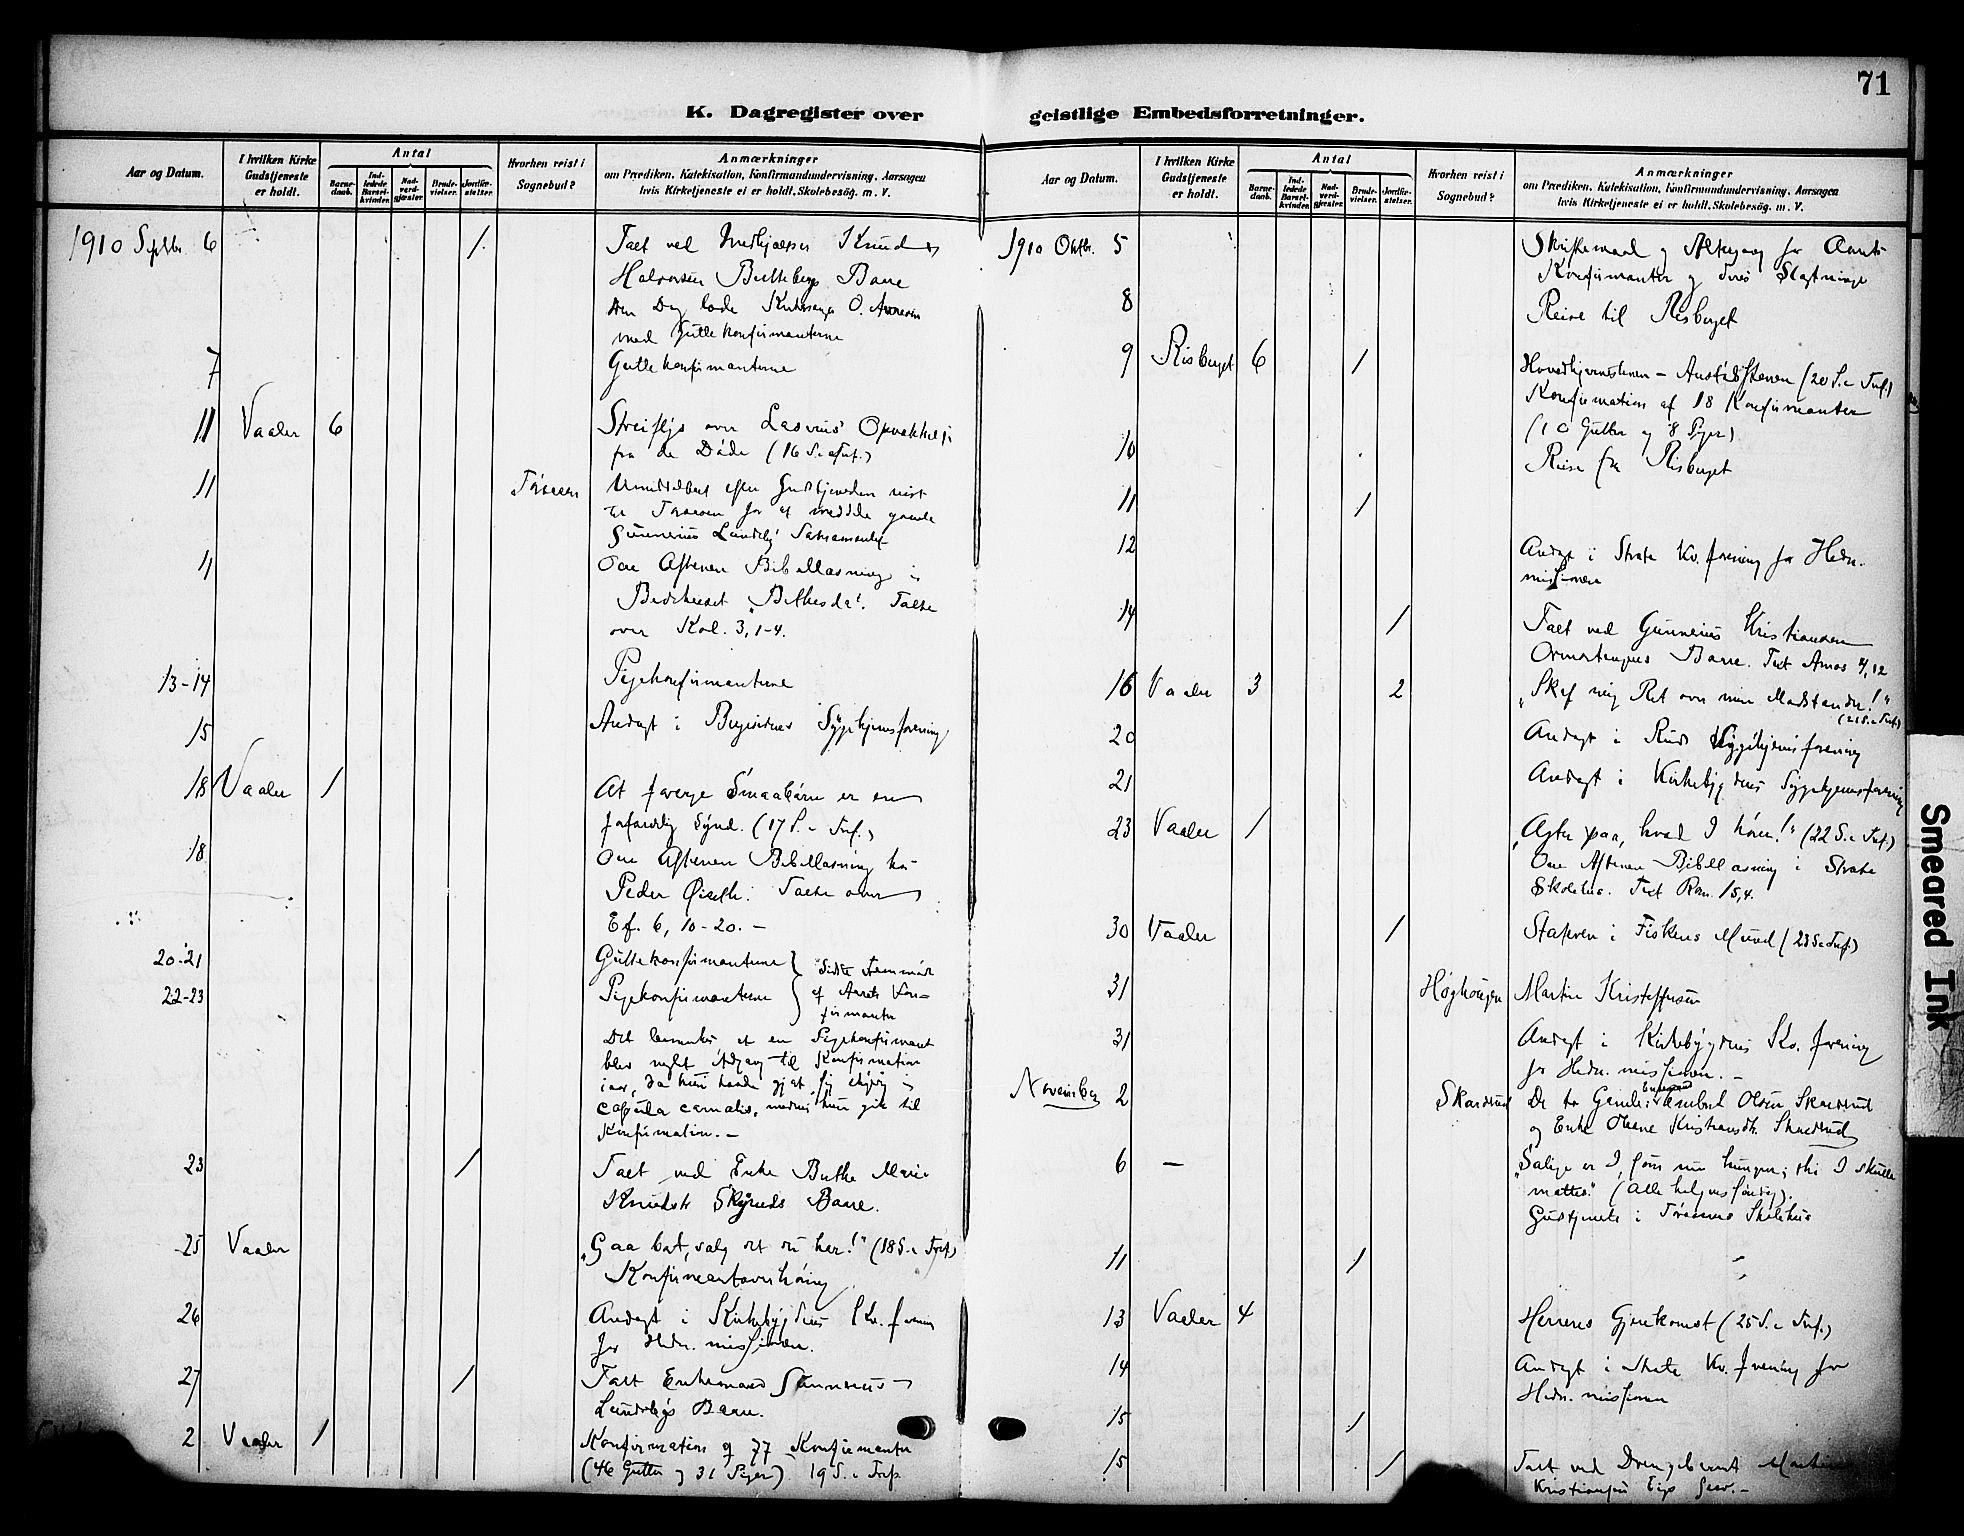 71
K. Dagregister over geistlige Embedsforretninger.
Aar og Datum.
I hvilken Kirke Gudstjeneste er holdt.
Antal
Barne-daab.
Ind-ledede Barsel-kvinder.
Nad-verd-gjæster.
Brude-vielser.
Jordfæ-stelser.
Hvorhen reist i Sognebud?
Anmærkninger
om Prædiken, Katekisation, Konfirmandundervisning, Aarsagen
hvis Kirketjeneste ei er holdt, Skolebesøg. m. V.
1910 Septbr. 6 1. Talt ved Medhjælper Knud
Halvorsen Butteberg Baare
den Dag lade Kirkesanger O.
med Guttekonfirmanterne
7 Guttekonfirmanterne
11 Vaaler 6 Streiflys over Lasarus' Opvækkelse
fra de Døde (16 S. e. Tref.)
11 Umiddelbart efter Gudstjenesten reist
til for at meddele gamle
Gunnerius Lundeby Sakramentet
11 Om Aftenen Bibellæsning i
Bedehuset "Bethesda". Talte
over Kol. 3, 1-4.
13-14 Pigekonfirmanterne
15 Andagt i Sygehjemsforening
18 Vaaler 1 At forarge Smaabørn er en
forfærdelig Synd. (17 S. e. Tref.)
18 Om Aftenen Bibellæsning hos
Peder Øiseth. Talte over
Ef. 6, 10-20. —
20-21 Guttekonfirmanterne } Sidste Fremmøde
22-23 Pigekonfirmanterne } af Aarets Kon-
firmanter
Det bemærkes at en Pigekonfirmant
blev nægtet Adgang til Konfirmation
iaar, da hun havde gjort sig skyldig i
copula carnalis, medens hun gik til
Konfirmation. —
23 1 Talt ved Enke Berthe Marie
Knudsdtr Skyruds Baare.
25 Vaaler "Gaa bort, sælg det du har!" (18 S. e. Tref.)
Konfirmantoverhøring
26 Andagt i Kirkebygdens Kv. forening
for Hedn. missionen.
27 1 Talt Enkemand Gunnerius
Lundebys Baare.
2 Vaaler 1 Konfirmation af 77 Konfirmanter
(46 Gutter og 31 Piger) 19 S. e. Tref.
Aar og Datum.
I hvilken Kirke Gudstjeneste er holdt.
Antal
Barne-daab.
Ind-ledede Barsel-kvinder.
Nad-verd-gjæster.
Brude-vielser.
Jordfæ-stelser.
Hvorhen reist i Sognebud?
Anmærkninger
om Prædiken, Katekisation, Konfirmandundervisning, Aarsagen
hvis Kirketjeneste ei er holdt, Skolebesøg. m. V.
1910 Oktbr. 5 Skriftemaal og Altergang for Aarets
Konfirmanter og deres Slægtninge
8 Reise til Risberget
9 Risberget 6 1 (20 S. e. Tref.)
Konfirmation af 18 Konfirmanter
(10 Gutter og 8 Piger)
10 Reise fra Risberget
11 1
12 Andagt i Strate Kv. forening for Hedn.
missionen
14 1 Talt ved Gunnerius Kristiansen
Baare. Text Amos 4, 12
16 Vaaler 3 2 "Skaf mig Ret over min Modstander!"
(21 S. e. Tref.)
20 Andagt i Ruds Sygehjemsforening
21 Andagt i Kirkebygdens Sygehjemsforening
23 Vaaler 1 "Agter paa, hvad I hører!" (22 S. e. Tref.)
Om Aftenen Bibellæsning i Strate
Skolehus. Text Rom. 15, 4.
30 Vaaler 1 Stateren i Fiskens Mund (23 S. e. Tref.)
31 Høghaugen Martin Kristoffersen
31 Andagt i Kirkebygdens Kv. forening
for Hedn. missionen. —
November 2 Skardrud De to Gamle: Enkemand Embret Olsen Skardrud
og Enke Olene Kristiansdtr. Skardrud
6 — "Salige er I, som nu hungrer; thi I skulle
mættes." (Alle helgens søndag).
Gudstjeneste i Skolehus
11 1
13 Vaaler 4 Herrens Gjenkomst (25 S. e. Tref.)
14 Andagt i Strate Kv. forening for
Hedn. missionen
15 1
15 1 Talt ved Drengebarnet
Kristiansen
Smeared Ink